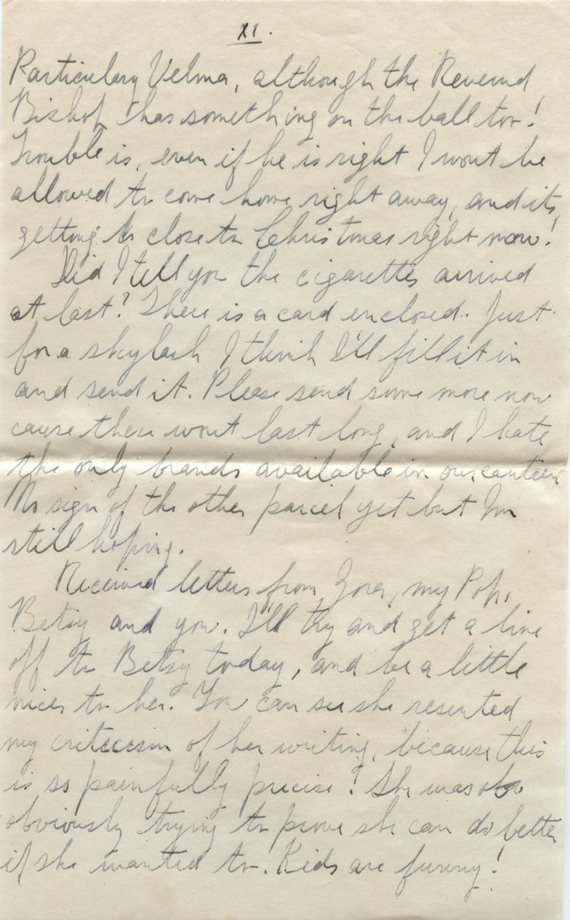 XI.
Particulary Velma, although the Reverend
Bishop has something on the ball too!
Trouble is, even if he is right I wont be
allowed to come home right away, and its
getting close to Christmas right now!
Did I tell you the cigarettes arrived
at last? There is a card enclosed. Just
for a skylark I think I'll fill it in
and send it. Please send some more now
cause these wont last long, and I hate
the only brands available in our canteen
No sign of the other parcel yet but Im
still hoping.
Received letters from my Pop,
Betsy and you. I'll try and get a line
off to Betsy today, and be a little
nicer to her. You can see she resented
my critecism of her writing, because this
is so painfully precise! She was
obviously trying to prove she can do better
if she wanted to. Kids are funny!